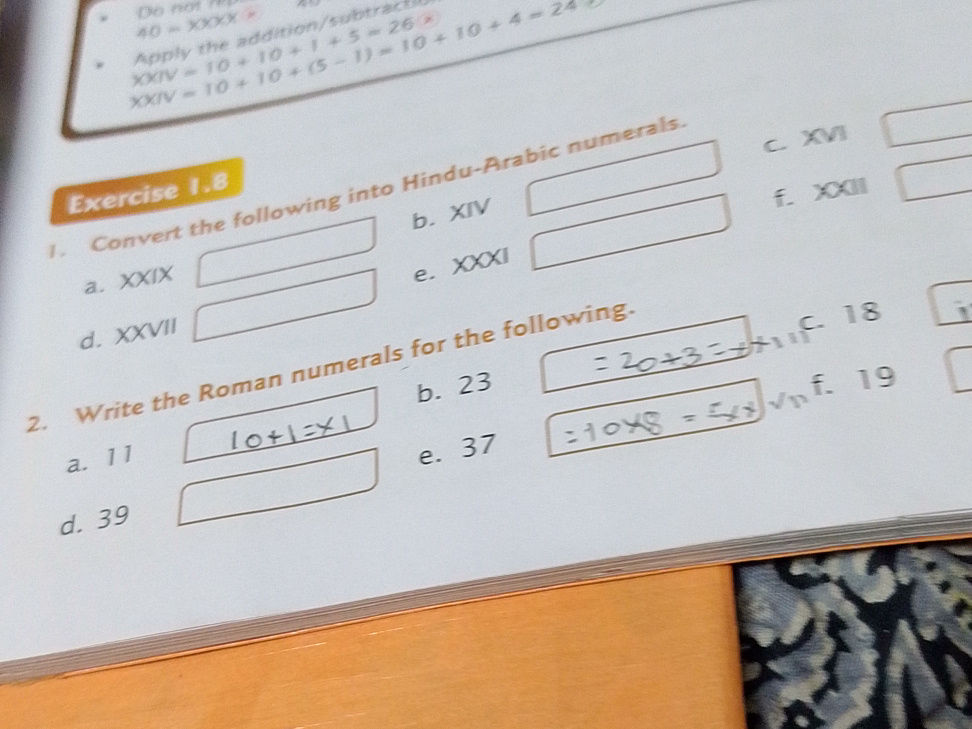 Do not
40 = XXXX ×
Apply the addition/subtraction
XXIV = 10 + 10 + 1 + 5 = 26 ×
XXIV = 10 + 10 + (5 − 1) = 10 + 10 + 4 = 24
Exercise 1.8
1. Convert the following into Hindu-Arabic numerals.
a. XXIX b. XIV c. XVI
d. XXVII e. XXXI f. XXIII
2. Write the Roman numerals for the following.
a. 11 10+1=X1 b. 23 = 20+3 = XXIII c. 18
d. 39 e. 37 =10X8 = f. 19